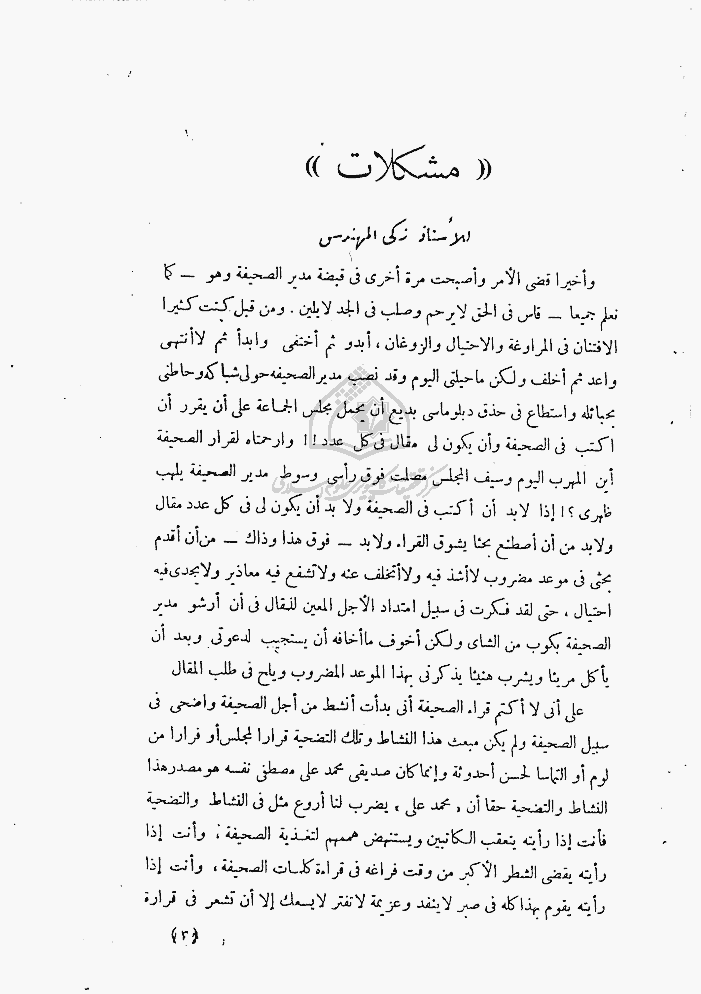 « مشكلات »
للأستاذ زكى المهندس
وأخيرا قضى الأمر وأصبحت مرة أخرى فى قبضة مدير الصحيفة وهو — كما
نعلم جميعا — قاس فى الحق لا يرحم وصلب فى الجد لا يلين . ومن قبل كنت كثيرا
الافتنان فى المراوغة والاحتيال والزوغان ، أبدو ثم أختفى وأبدأ ثم لا أنتهى
وأعد ثم أخلف ولكن ما حيلتى اليوم وقد نصب مدير الصحيفة حولى شباكه وحاطنى
بحبائله واستطاع فى حذق دبلوماسى بديع أن يحمل مجلس الجماعة على أن يقرر أن
اكتب فى الصحيفة وأن يكون لى مقال فى كل عدد !! وارحمتاه لقرار الصحيفة
أين المهرب اليوم وسيف المجلس مصلت فوق رأسى وسوط مدير الصحيفة يلهب
ظهرى ؟! إذا لابد أن أكتب فى الصحيفة ولا بد أن يكون لى فى كل عدد مقال
ولابد من أن أصطنع بحثا يشوق القراء ولابد — فوق هذا وذاك — من أن أقدم
بحثى فى موعد مضروب لا أشذ فيه ولا أتخلف عنه ولا تشفع فيه معاذير ولا يجدى فيه
احتيال ، حتى لقد فكرت فى سبيل امتداد الأجل المعين للمقال فى أن أرشو مدير
الصحيفة بكوب من الشاى ولكن أخوف ما أخافه أن يستجيب لدعوتى وبعد أن
يأكل مريئا ويشرب هنيئا يذكرنى بهذا الموعد المضروب ويلح فى طلب المقال
على أنى لا أكتم قراء الصحيفة أنى بدأت أنشط من أجل الصحيفة واضحى فى
سبيل الصحيفة ولم يكن مبعث هذا النشاط وتلك التضحية قرارا لمجلس أو فرارا من
لوم أو التماسا لحسن أحدوثة وإنما كان صديقى محمد على مصطفى نفسه هو مصدر هذا
النشاط والتضحية حقا أن « محمد على » يضرب لنا أروع مثل فى النشاط والتضحية
فأنت إذا رأيته يتعقب الكاتبين ويستنهض هممهم لتغذية الصحيفة ، وأنت إذا
رأيته يقضى الشطر الأكبر من وقت فراغه فى قراءة كلمات الصحيفة ، وأنت إذا
رأيته يقوم بهذا كله فى صبر لا ينفد وعزيمة لا تفتر لا يسعك إلا أن تشعر فى قرارة
(٢)